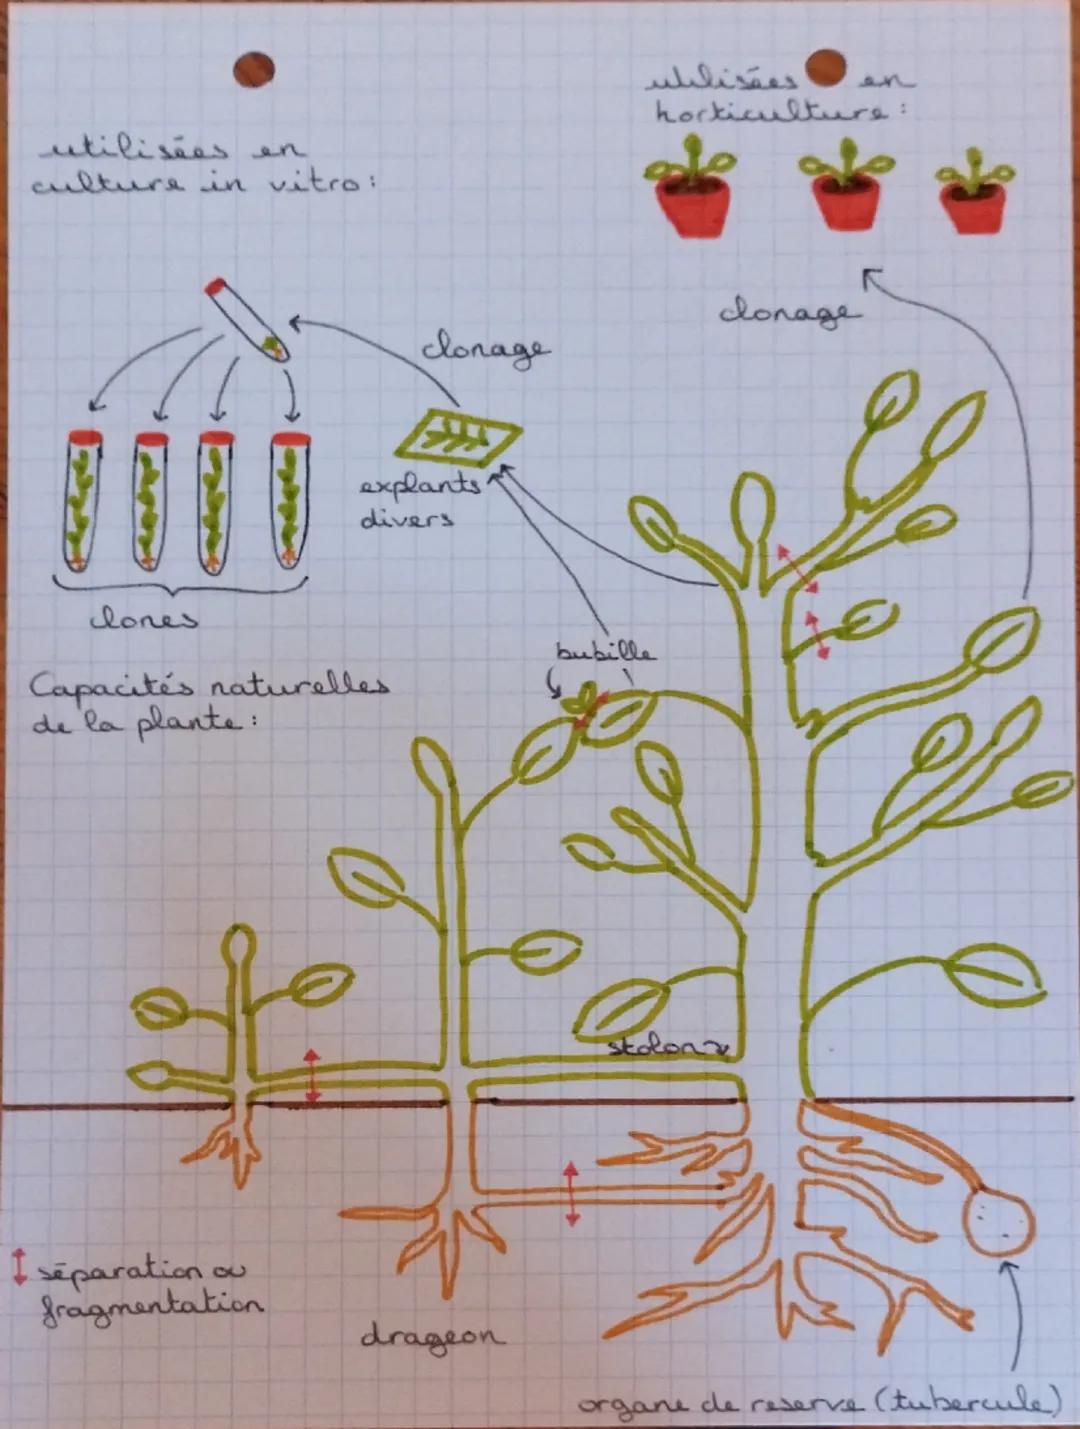 utilisées en
horticulture :
utilisées en
culture in vitro :
clonage
clonage
explants
divers
clones
bubille
Capacités naturelles
de la plante :
stolon
séparation ou
fragmentation
drageon
organe de reserve (tubercule)